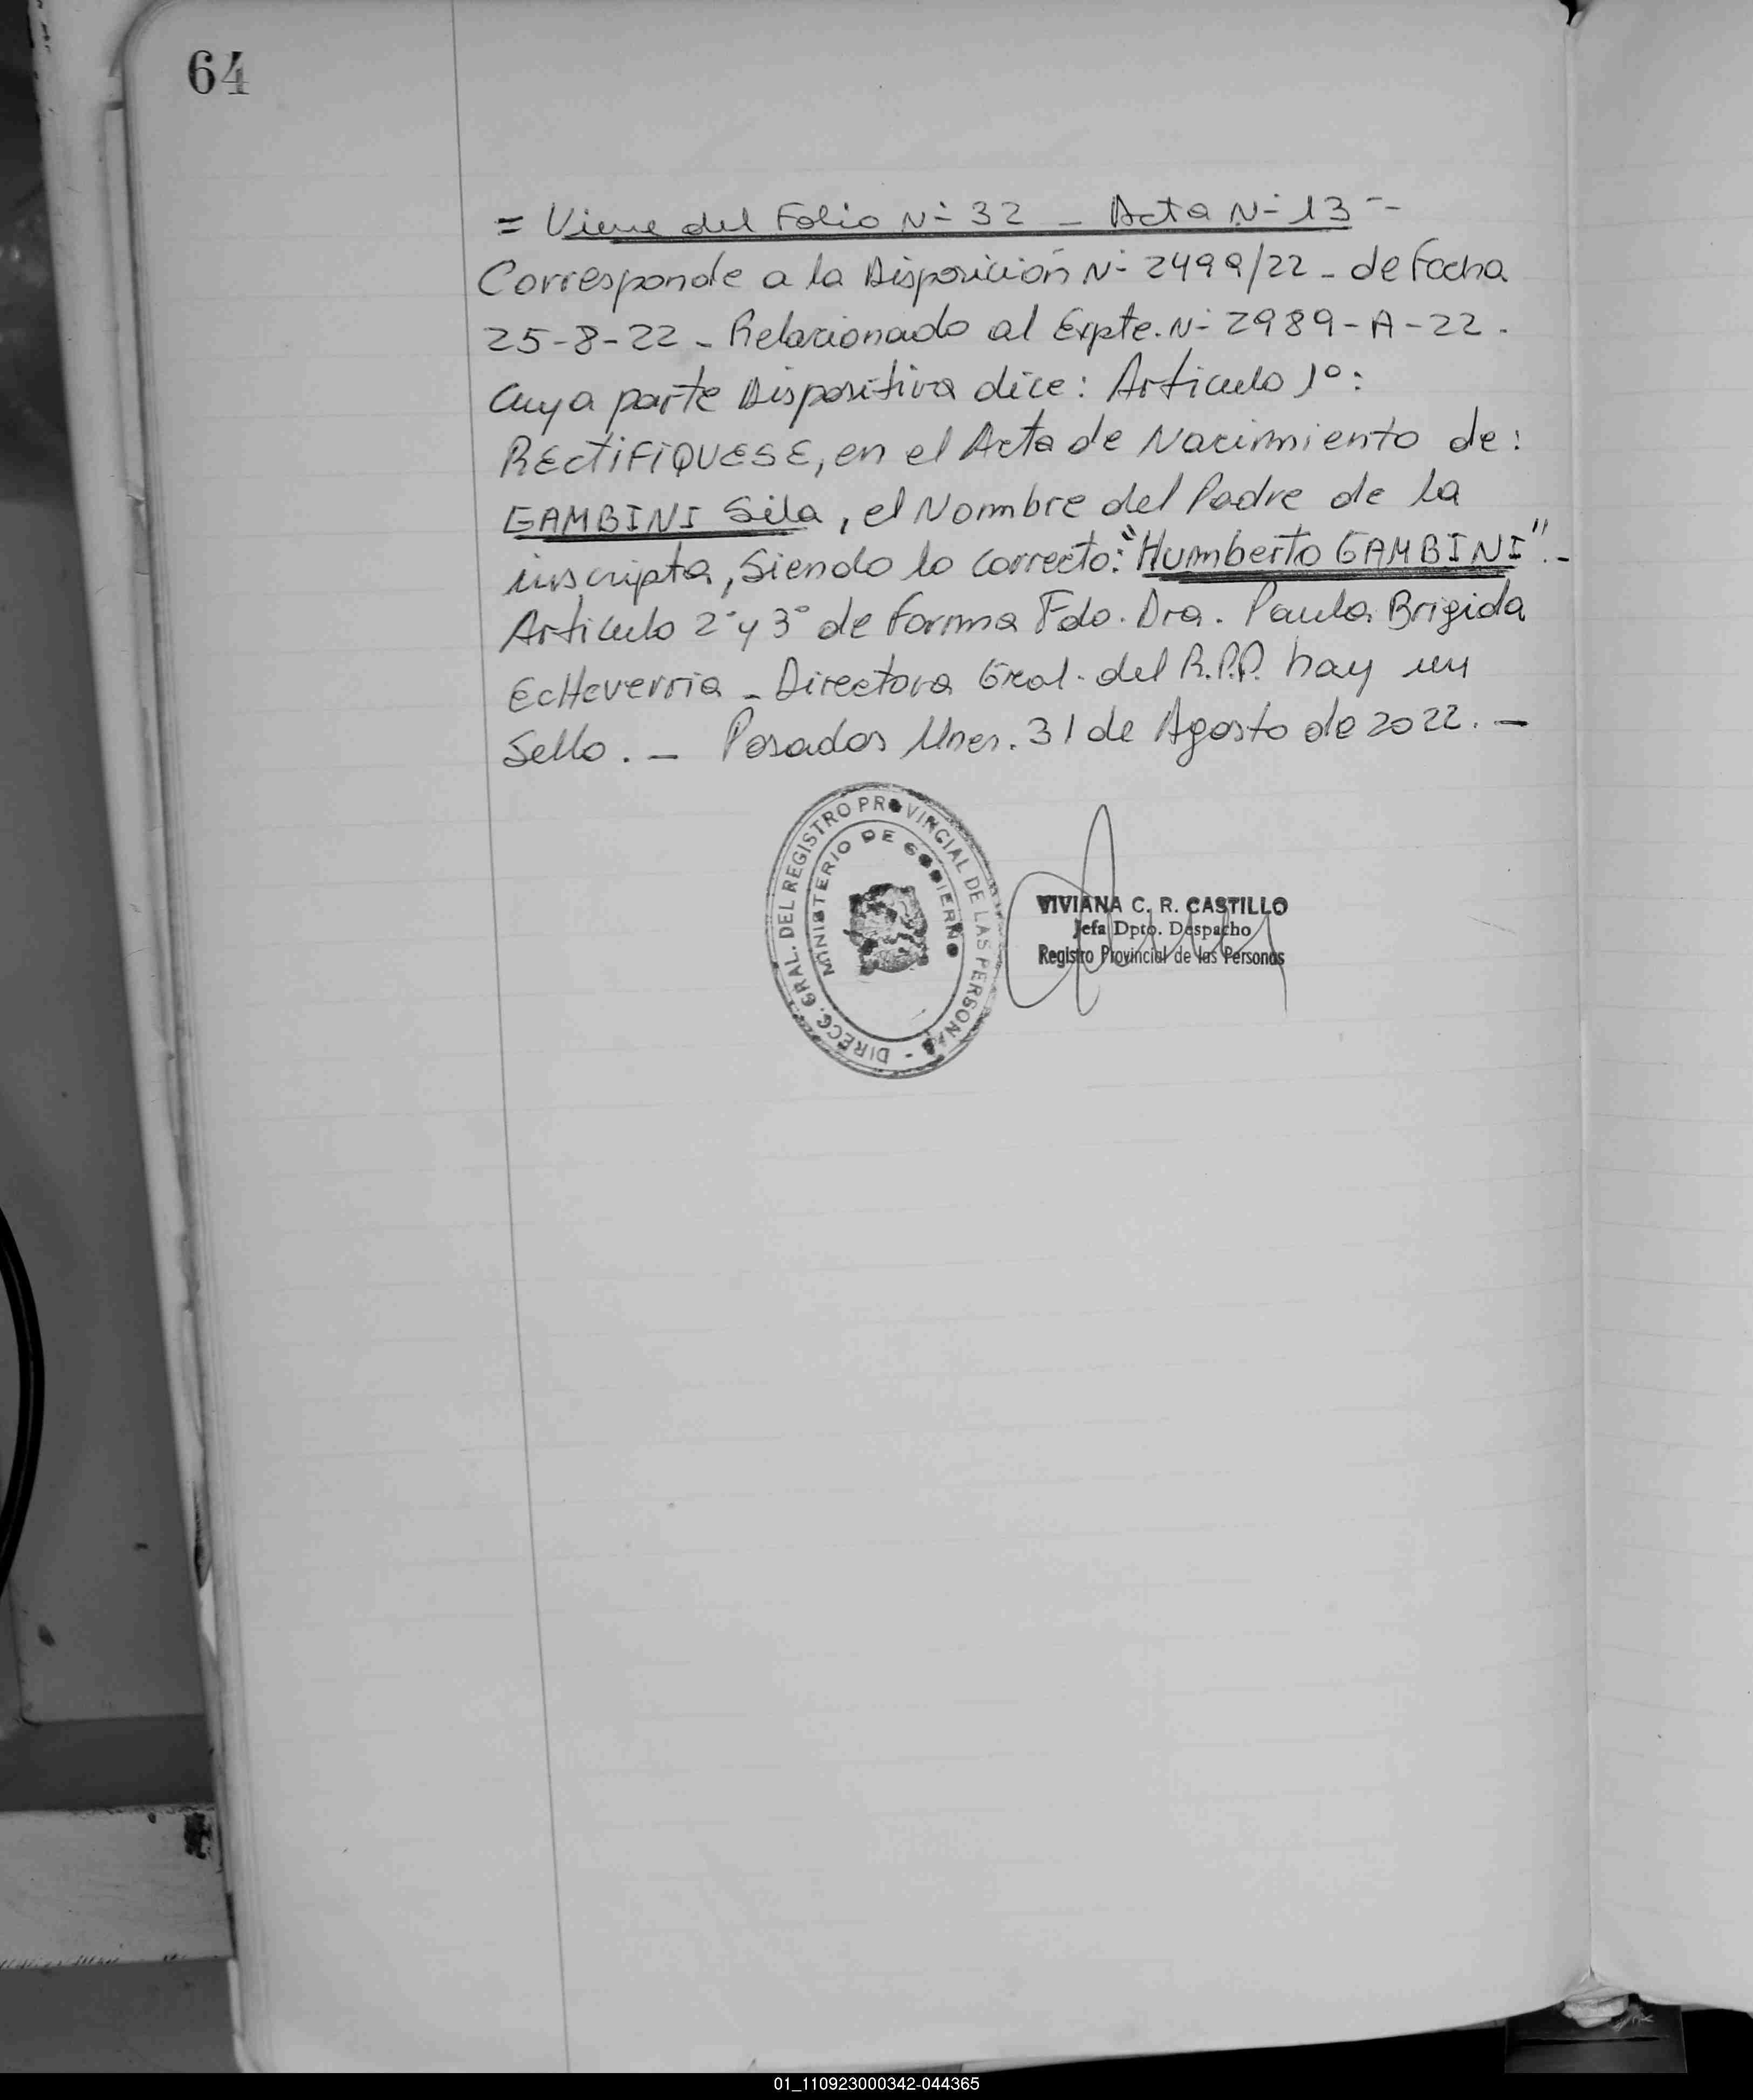 64
= Viene del Folio N- 32 - Acta N- 13 --
Corresponde a la Disposición N- 2499/22 - de Fecha
25-8-22 - Relacionado al Expte. N- 2989-A-22.
Cuya parte Dispositiva dice: Articulo 1º:
RECTIFIQUESE, en el Acta de Nacimiento de:
GAMBINI Sila, el Nombre del Padre de la
inscripta, Siendo lo correcto: "Humberto GAMBINI".-
Articulo 2º y 3º de forma Fdo. Dra. Paula Brigida
EcHeverria - Directora Gral. del R.P.P. hay un
Sello. - Posadas Mnes. 31 de Agosto de 2022. -
DIRECC. GRAL. DEL REGISTRO PROVINCIAL DE LAS PERSONAS -
MINISTERIO DE GOBIERNO
VIVIANA C. R. CASTILLO
Jefa Dpto. Despacho
Registro Provincial de las Personas
01_110923000342-044365